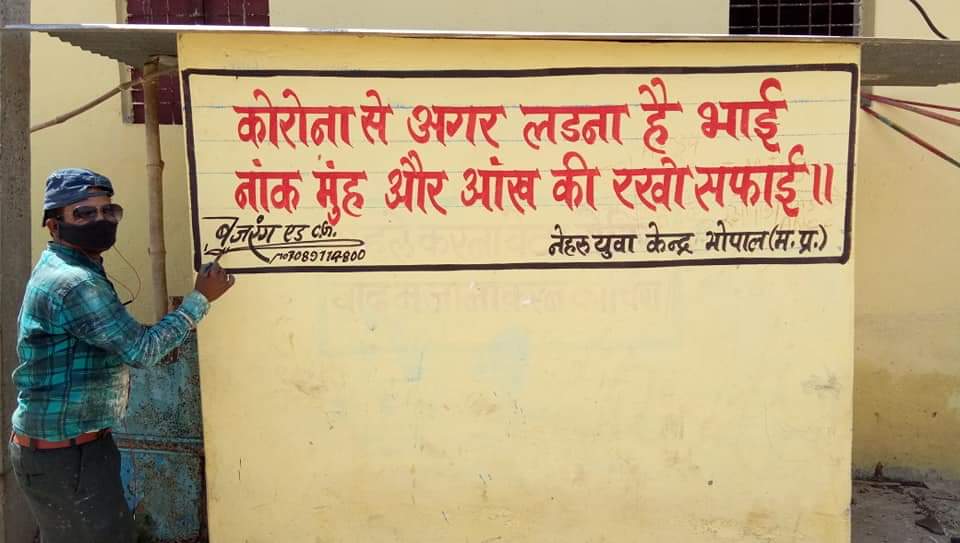 कोरोना से अगर लडना है भाई
नांक मुंह और आंख की रखो सफाई॥
बजरंग एड कं.
नेहरू युवा केन्द्र भोपाल (म.प्र.)